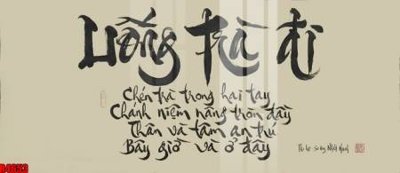 Uống trà đi
Chén trà trong hai tay
Chánh niệm nâng tròn đầy
Thân và tâm an trú
Bây giờ và ở đây
Sư ông Nhất Hạnh